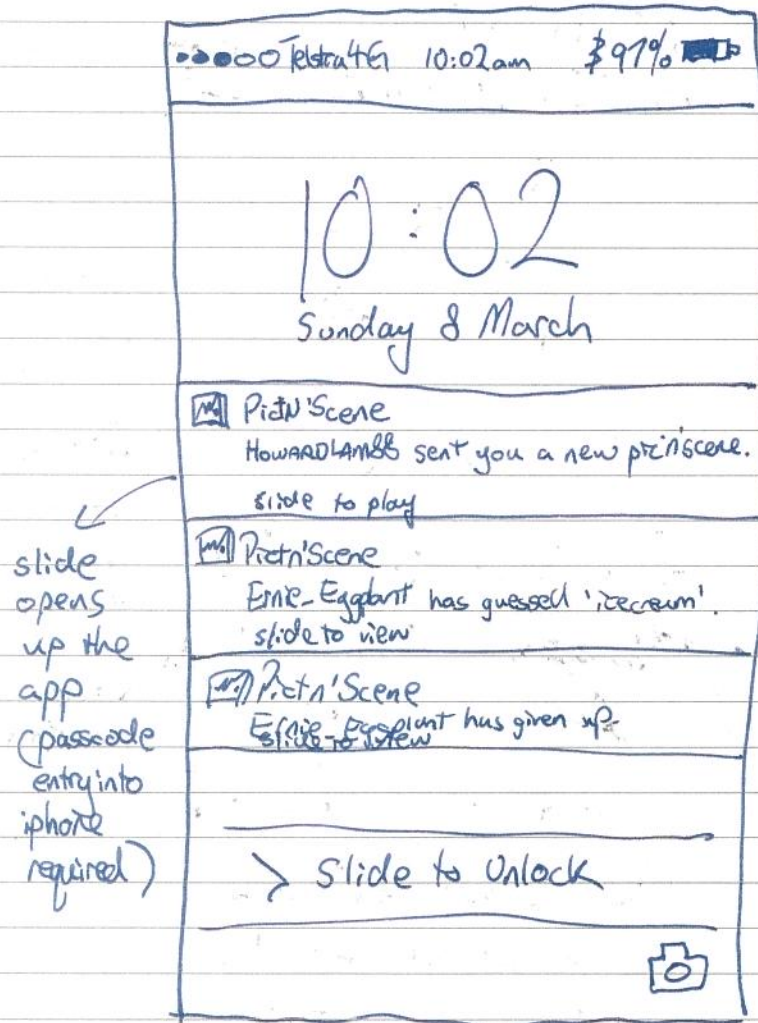 Telstra 4G 10:02am 97%
10:02
Sunday 8 March
Pictn'Scene
HOWARDLAM88 sent you a new pictn'scene.
slide to play
Pictn'Scene
Ernie_Eggplant has guessed 'icecream'.
slide to view
Pictn'Scene
Ernie_Eggplant has given up.
slide to view
> Slide to Unlock
slide
opens
up the
app
(passcode
entry into
iphone
required)